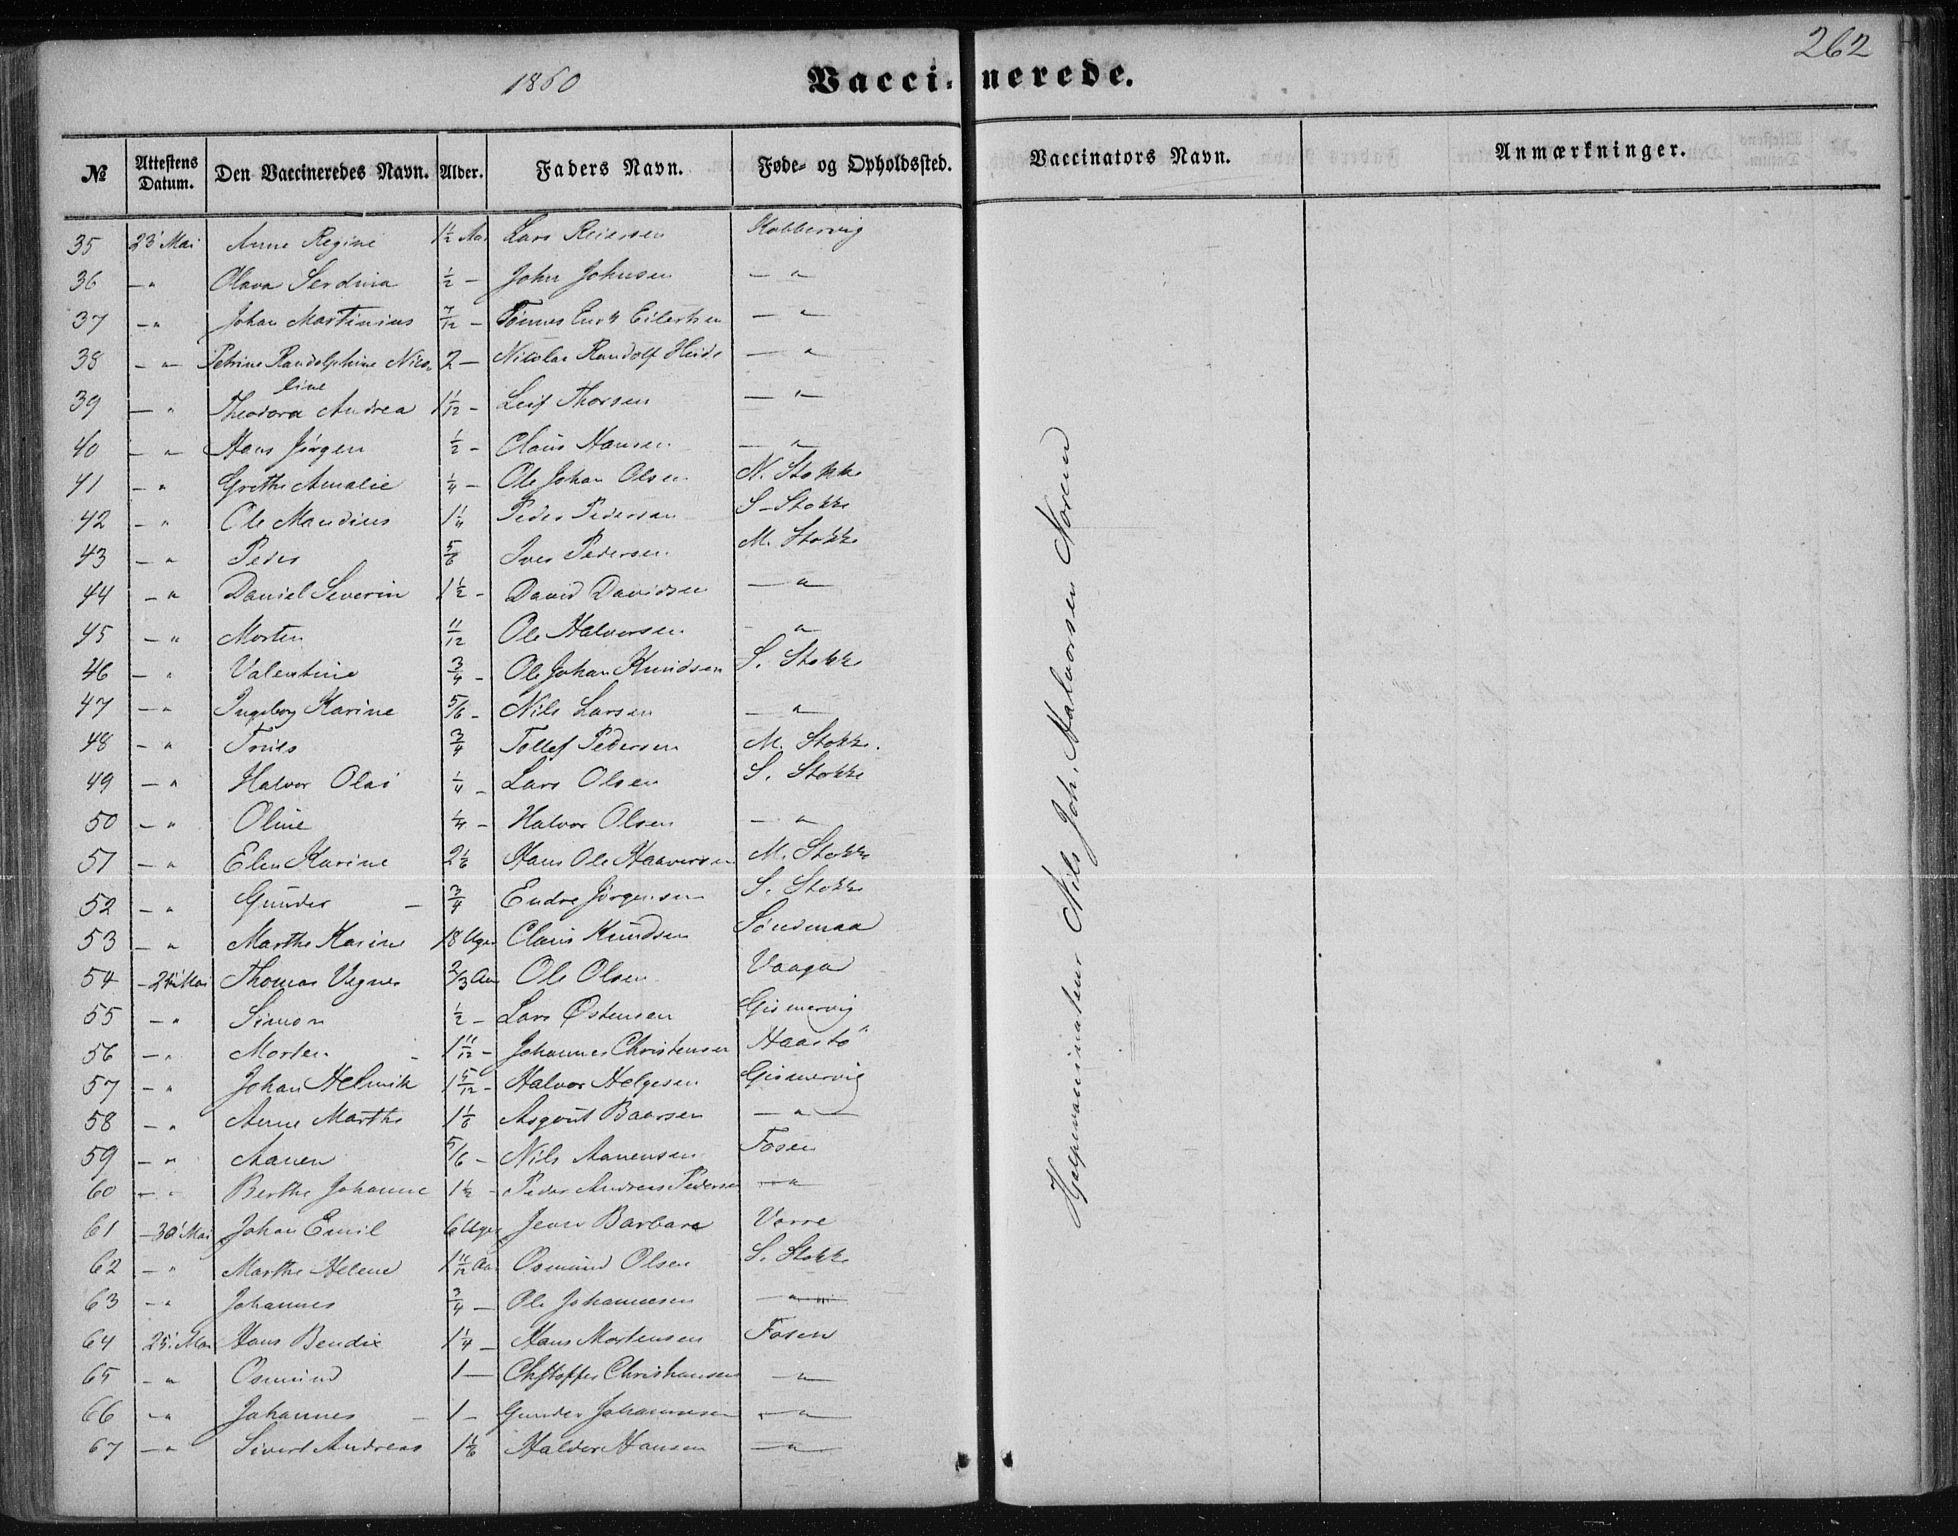 262
1860 Vaccinerede.
№ Attestens Datum. Den Vaccineredes Navn. Alder. Faders Navn. Føde- og Opholdssted. Vaccinators Navn. Anmærkninger.
35 23' Mai Anne Regine 1½ Aar Lars Reiersen Kobbervig
36 — " Olava Serdina ½ — John Johnsen — " —
37 — " Johan Martinius 7/12 — Tønnes Eilertsen — " —
38 — " Petrine Randolphine Nico-
line 2 — Nicolai Randolf Heide — " —
39 — " Theodora Andrea 1 1/12 — Leif Thorsen — " —
40 — " Hans Jørgen ½ — Claus Hansen — " —
41 — " Grethe Amalie ¼ — Ole Johan Olsen N. Stokke
42 — " Ole Mandius 1¼ Peder Pedersen S. Stokke
43 — " Peder 5/6 Iver Pedersen M. Stokke
44 — " Daniel Severin 1½ — David Davidsen — " —
45 — " Morten 11/12 Ole Halvorsen — " —
46 — " Valentine ¾ — Ole Johan Knudsen S. Stokke
47 — " Ingeborg Karine 5/6 — Nils Larsen — " —
48 — " Truls ¾ Tollef Pedersen M. Stokke.
49 — " Halvor Olai ¼ — Lars Olsen S. Stokke
50 — " Oline ¼ — Halvor Olsen — " —
51 — " Elen Karine 2 1/6 Hans Ole Haavorsen M. Stokke
52 — " Gunder — ¾ Endre Jørgensen S. Stokke
53 — " Marthe Karine 18 Uger Claus Knudsen Søndenaa
54 — 24' Mai Thomas Vegner 2/3 Aar Ole Olsen Vaaga
55 — " Simon ½ — Lars Østensen Gismervig
56 — " Morten — 1 11/12 — Johannes Christensen Haastø
57 — " Johan Helmik 1 5/12 — Halvor Helgesen Gismervig
58 — " Anne Marthe 1 1/6 Asgout Baarsen — " —
59 — " Aanen 5/6 — Nils Aanensen Fosen
60 — " Berthe Johanne 1½ — Peder Andreas Pedersen — " —
61 — 30' Mai Johan Emil 6 Uger Jens Barbara Vorre
62 — " Marthe Helene 1 11/12 Aar Osmund Olsen S. Stokke
63 — " Johannes ¾ — Ole Johannesen — " —
64 25' Mai Hans Bendix 1¼ — Hans Mortensen Fosen
65 — " Osmund 1 — Chrstoffer Christiansen — " —
66 — " Johannes — 1 — Gunder Johannesen — " —
67 — " Sivert Andreas 1 1/6 Halvor Hansen — " —
Hjælpevaccinateur Nils Joh. Halvorsen Noreen